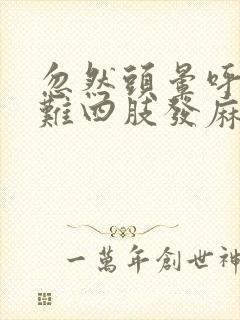 忽然頭暈呼
難四肢發麻
一萬年創世神